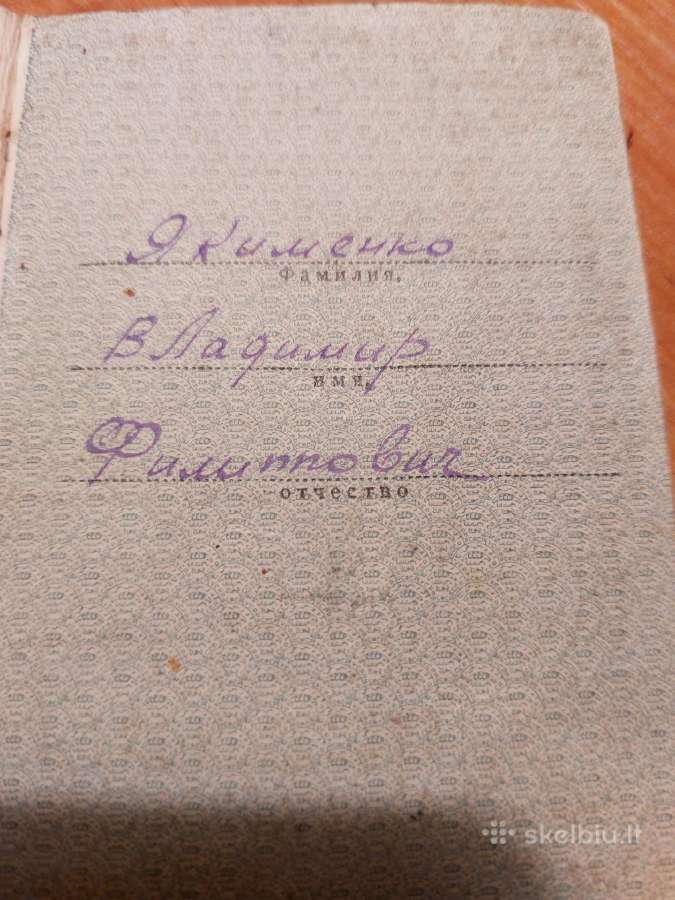 Якименко
Фамилия,
Владимир
имя,
Филиппович
отчество
skelbiu.lt